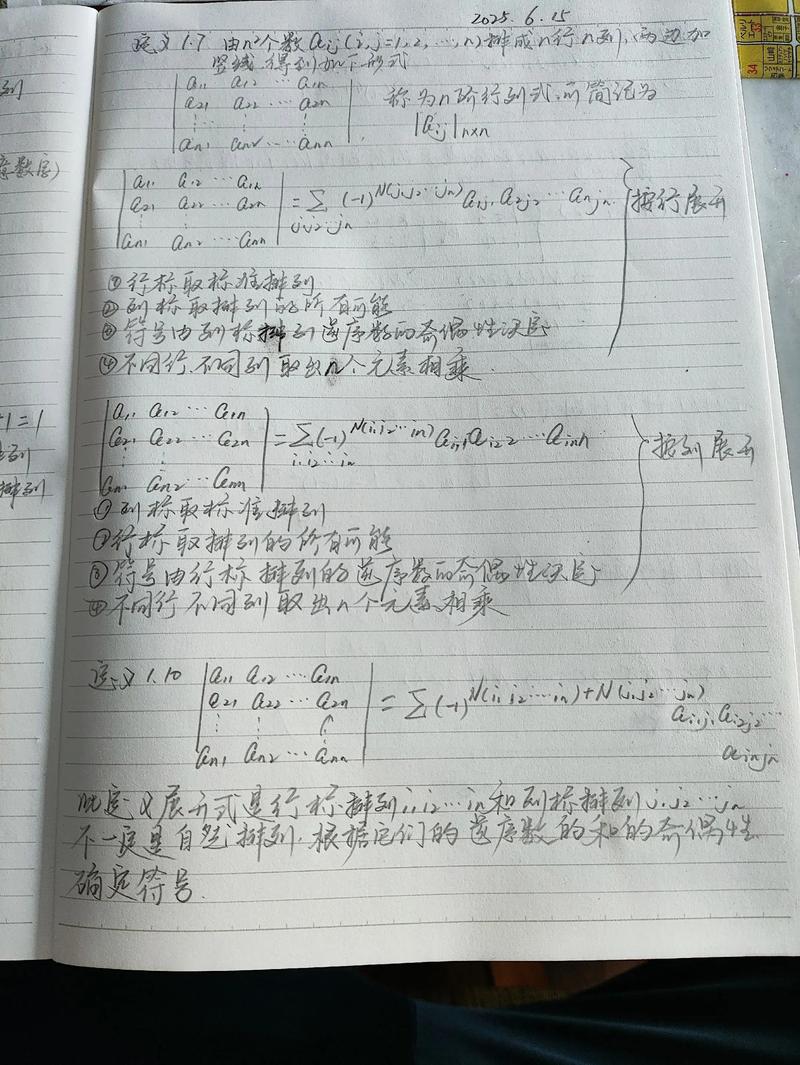 2025.6.15
定义1.7 由n²个数aij(i,j=1,2,…,n)排成n行n列,两边加
竖线,得到如下形式
a11 a12 … a1n
a21 a22 … a2n
⋮ ⋮ ⋮
an1 an2 … ann
称为n阶行列式,可简记为
|aij|n×n
a11 a12 … a1n
a21 a22 … a2n
⋮
an1 an2 … ann
=∑(-1)^N(j1j2…jn) a1j1 a2j2 … anjn
j1j2…jn
按行展开
①行标取标准排列
②列标取排列的所有可能
③符号由列标排列逆序数的奇偶性决定
④不同行、不同列取出n个元素相乘.
a11 a12 … a1n
a21 a22 … a2n
⋮ ⋮
an1 an2 … ann
=∑(-1)^N(i1i2…in) ai11 ai22 … ainn
i1i2…in
按列展开
①列标取标准排列
②行标取排列的所有可能
③符号由行标排列的逆序数的奇偶性决定
④不同行不同列取出n个元素相乘
定义1.10
a11 a12 … a1n
a21 a22 … a2n
⋮ ⋮
an1 an2 … ann
=∑(-1)^N(i1i2…in)+N(j1j2…jn)
ai1j1 ai2j2 …
ainjn
此定义展开式是行标排列i1i2…in和列标排列j1j2…jn
不一定是自然排列.根据它们的逆序数的和的奇偶性
确定符号.
列
意数字)
+1=1
排列
34